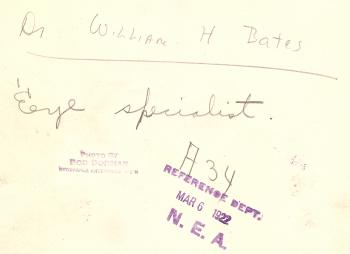 Dr William H Bates
Eye specialist.
A 34
PHOTO BY
BOB DORMAN
REFERENCE DEPT.
MAR 6 1922
N. E. A.